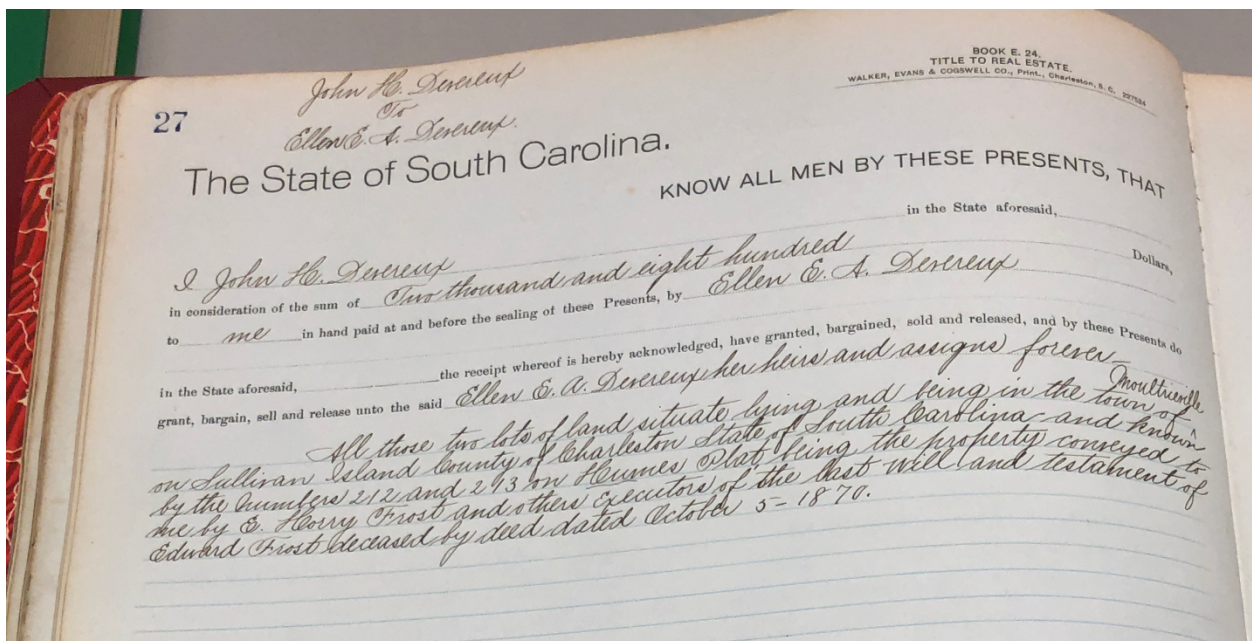 BOOK E. 24.
TITLE TO REAL ESTATE.
WALKER, EVANS & COGSWELL CO., Print., Charleston, S. C. 227524
27
John H. Devereux
To
Ellen E. A. Devereux.
The State of South Carolina.
KNOW ALL MEN BY THESE PRESENTS, THAT
I John H. Devereux in the State aforesaid,
in consideration of the sum of Two thousand and eight hundred Dollars,
to me in hand paid at and before the sealing of these Presents, by Ellen E. A. Devereux
in the State aforesaid, the receipt whereof is hereby acknowledged, have granted, bargained, sold and released, and by these Presents do
grant, bargain, sell and release unto the said Ellen E. A. Devereux her heirs and assigns forever
All those two lots of land situate lying and being in the town of ^ Moultrieville
on Sullivan Island County of Charleston State of South Carolina and known
by the numbers 212 and 213 on Humes Plat being the property conveyed to
me by E. Horry Frost and others Executors of the last will and testament of
Edward Frost deceased by deed dated October 5 - 1870.